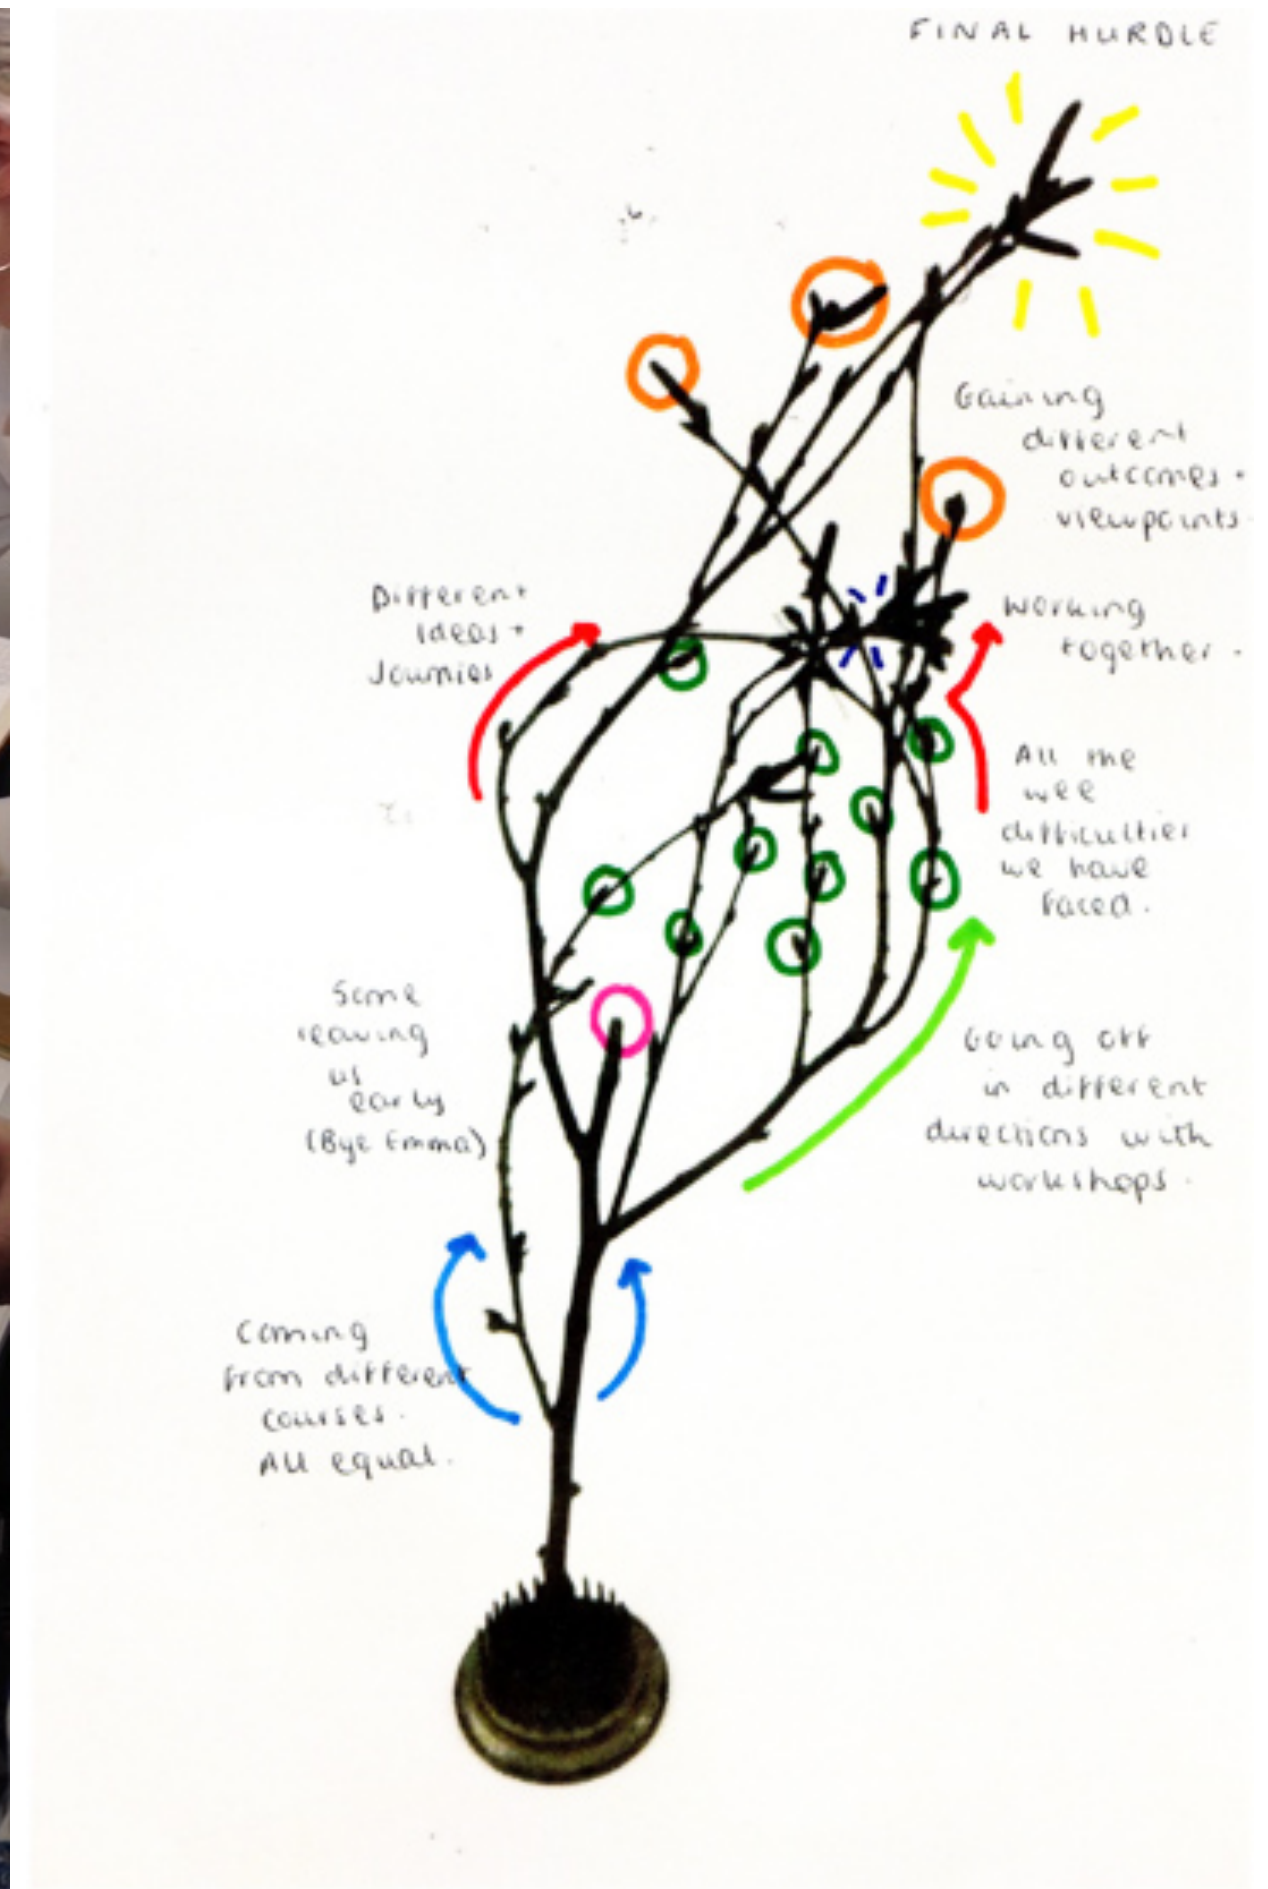 FINAL HURDLE
Gaining
different
outcomes +
viewpoints
Different
Ideas +
Journies
Working
together.
All the
wee
difficulties
we have
faced.
Some
leaving
us
early
(Bye Emma)
Going off
in different
directions with
workshops.
Coming
from different
courses.
All equal.